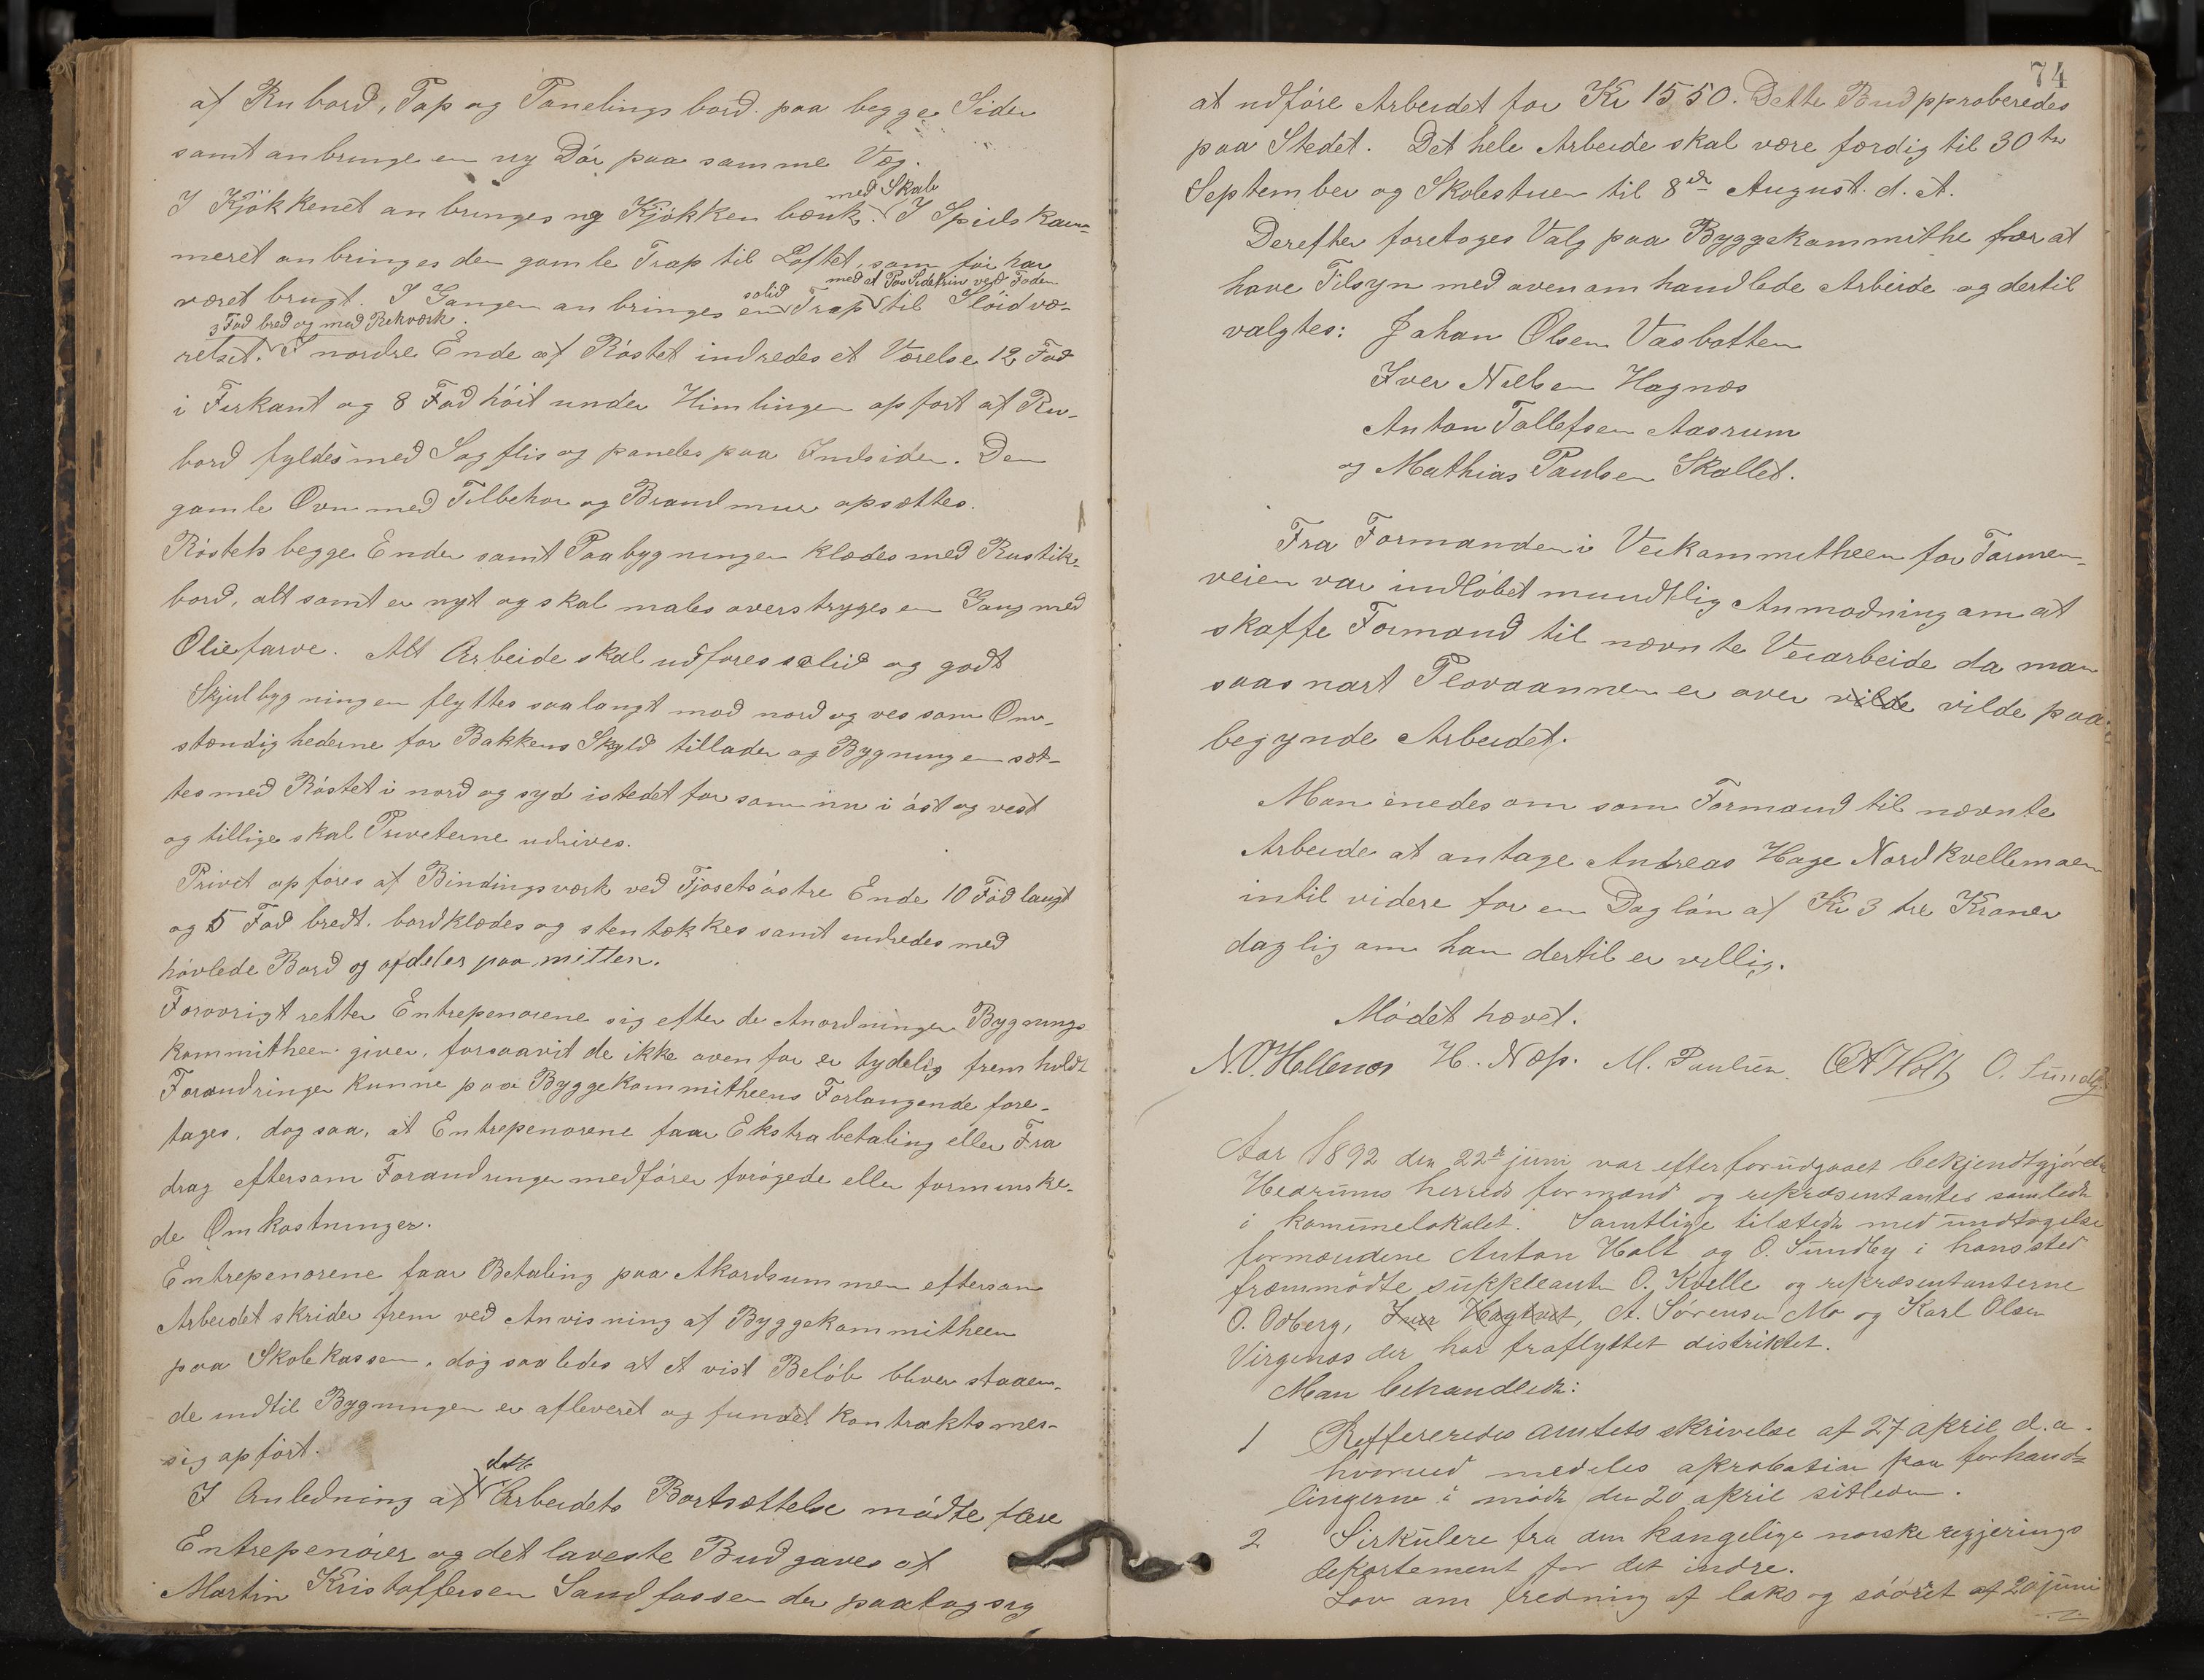 af Rubord, Pap og Panelingsbord paa begge Sider
samt anbringe en ny Dör paa samme Væg.
med Skab
I Kjökkenet anbringes ny Kjökkenbænk. I Spiskam-
meret anbringes den gamle Trap til Loftet, som för har
solid med et Par Sidetrin ved Foden
været brugt. I Gangen anbringes en Trap til Slöidvæ-
3 Fod bred og med Rekværk.
relset. I nordre Ende af Röstet indredes et Værelse 12 Fod
i Firkant og 8 Fod höit under Himlingen opfört af Ru-
bord fyldes med Sagflis og paneles paa Indsiden. Den
gamle Ovn med Tilbehor og Brandmur opsættes.
Röstets begge Ender samt Paabygningen klædes med Rustik-
bord, alt samt er nyt og skal males overstryges en Gang med
Oliefarve. Alt Arbeide skal udfores solid og godt
Skjulbygningen flyttes saalangt mod nord og ves som Om-
stændighederne for Bakkens Skyld tillader og Bygningen sæt-
tes med Röstet i nord og syd istedet for som nu i öst og vest
og tillige skal Priveterne udrives.
Privet opföres af Bindingsværk ved Fjosets östre Ende 10 Fod langt
og 5 Fod bredt. bordklædes og stentækkes samt indredes med
hövlede Bord og afdeles paa mitten.
Forovrigt retter Entrepenorene sig efter de Anordninger Bygnings
kommitheen giver, forsaavit de ikke ovenfor er tydelig fremholdt
Forandringer kunne paa Byggekommitheens Forlangende fore-
tages, dog saa, at Entrepenorene faar Ekstrabetaling eller Fra
drag eftersom Forandringer medförer forögede eller forminske-
de Omkostninger.
Entrepenorene faar Betaling paa Akordsummen eftersom
Arbeidet skrider frem ved Anvisning af Byggekommitheen
paa Skolekassen, dog saaledes at et vist Belöb bliver staaen-
de indtil Bygningen er afleveret og fundet kontraktsmes-
sig opfört.
dette
I Anledning af Arbeidets Bortsættelse mödte flere
Entrepenörer og det laveste Bud gaves af
Martin Kristoffersen Sandfossen der paatog sig
74
at udföre Arbeidet for Kr 1550. Dette Bud pproberedes
paa Stedet. Det hele Arbeide skal være færdig til 30te
September og Skolestuen til 8de August d. A.
Derefter foretoges Valg paa Byggekommithe for at
have Tilsyn med ovenomhandlede Arbeide og dertil
valgtes: Johan Olsen Vasbotten
Iver Nilsen Hagnæs
Anton Tollefsen Aasrum
og Mathias Paulsen Skallet.
Fra Formanden i Veikommitheen for Farmen-
veien var indlöbet mundtlig Anmodning om at
skaffe Formand til nævnte Veiarbeide da man
saasnart Plovaannen er over vilde vilde paa-
begynde Arbeidet.
Man enedes om som Formand til nævnte
Arbeide at antage Andreas Hage Nordkvellemoen
intil videre for en Daglön af Kr 3 tre Kroner
daglig om han dertil er villig.
Mödet hævet.
N.O. Hellenes H. Næss. M. Paulsen. A Holt O. Sundby
Aar 1892 den 22de juni var efter forudgaaet bekjendtgjörelse
Hedrums herreds formænd og repræsentanter samlede
i kommunelokalet. Samtlige tilstede med undtagelse
formændene Anton Holt og O. Sundby i hans sted
fremmödte suppleant O. Kvelle og repræsentanterne
O. Odberg, Iver Hagtvet, A. Sörensen Mo og Karl Olsen
Virgenæs der har fraflyttet distriktet.
Man behandlede:
1 Reffereredes amtets skrivelse af 27 april d.a.
hvorved medeles aprobation paa forhand-
lingerne i möde den 20 april sitleden.
2 Sirkulere fra den kongelige norske regjerings
departement for det indre.
Lov om fredning af laks og söörret af 20 juni